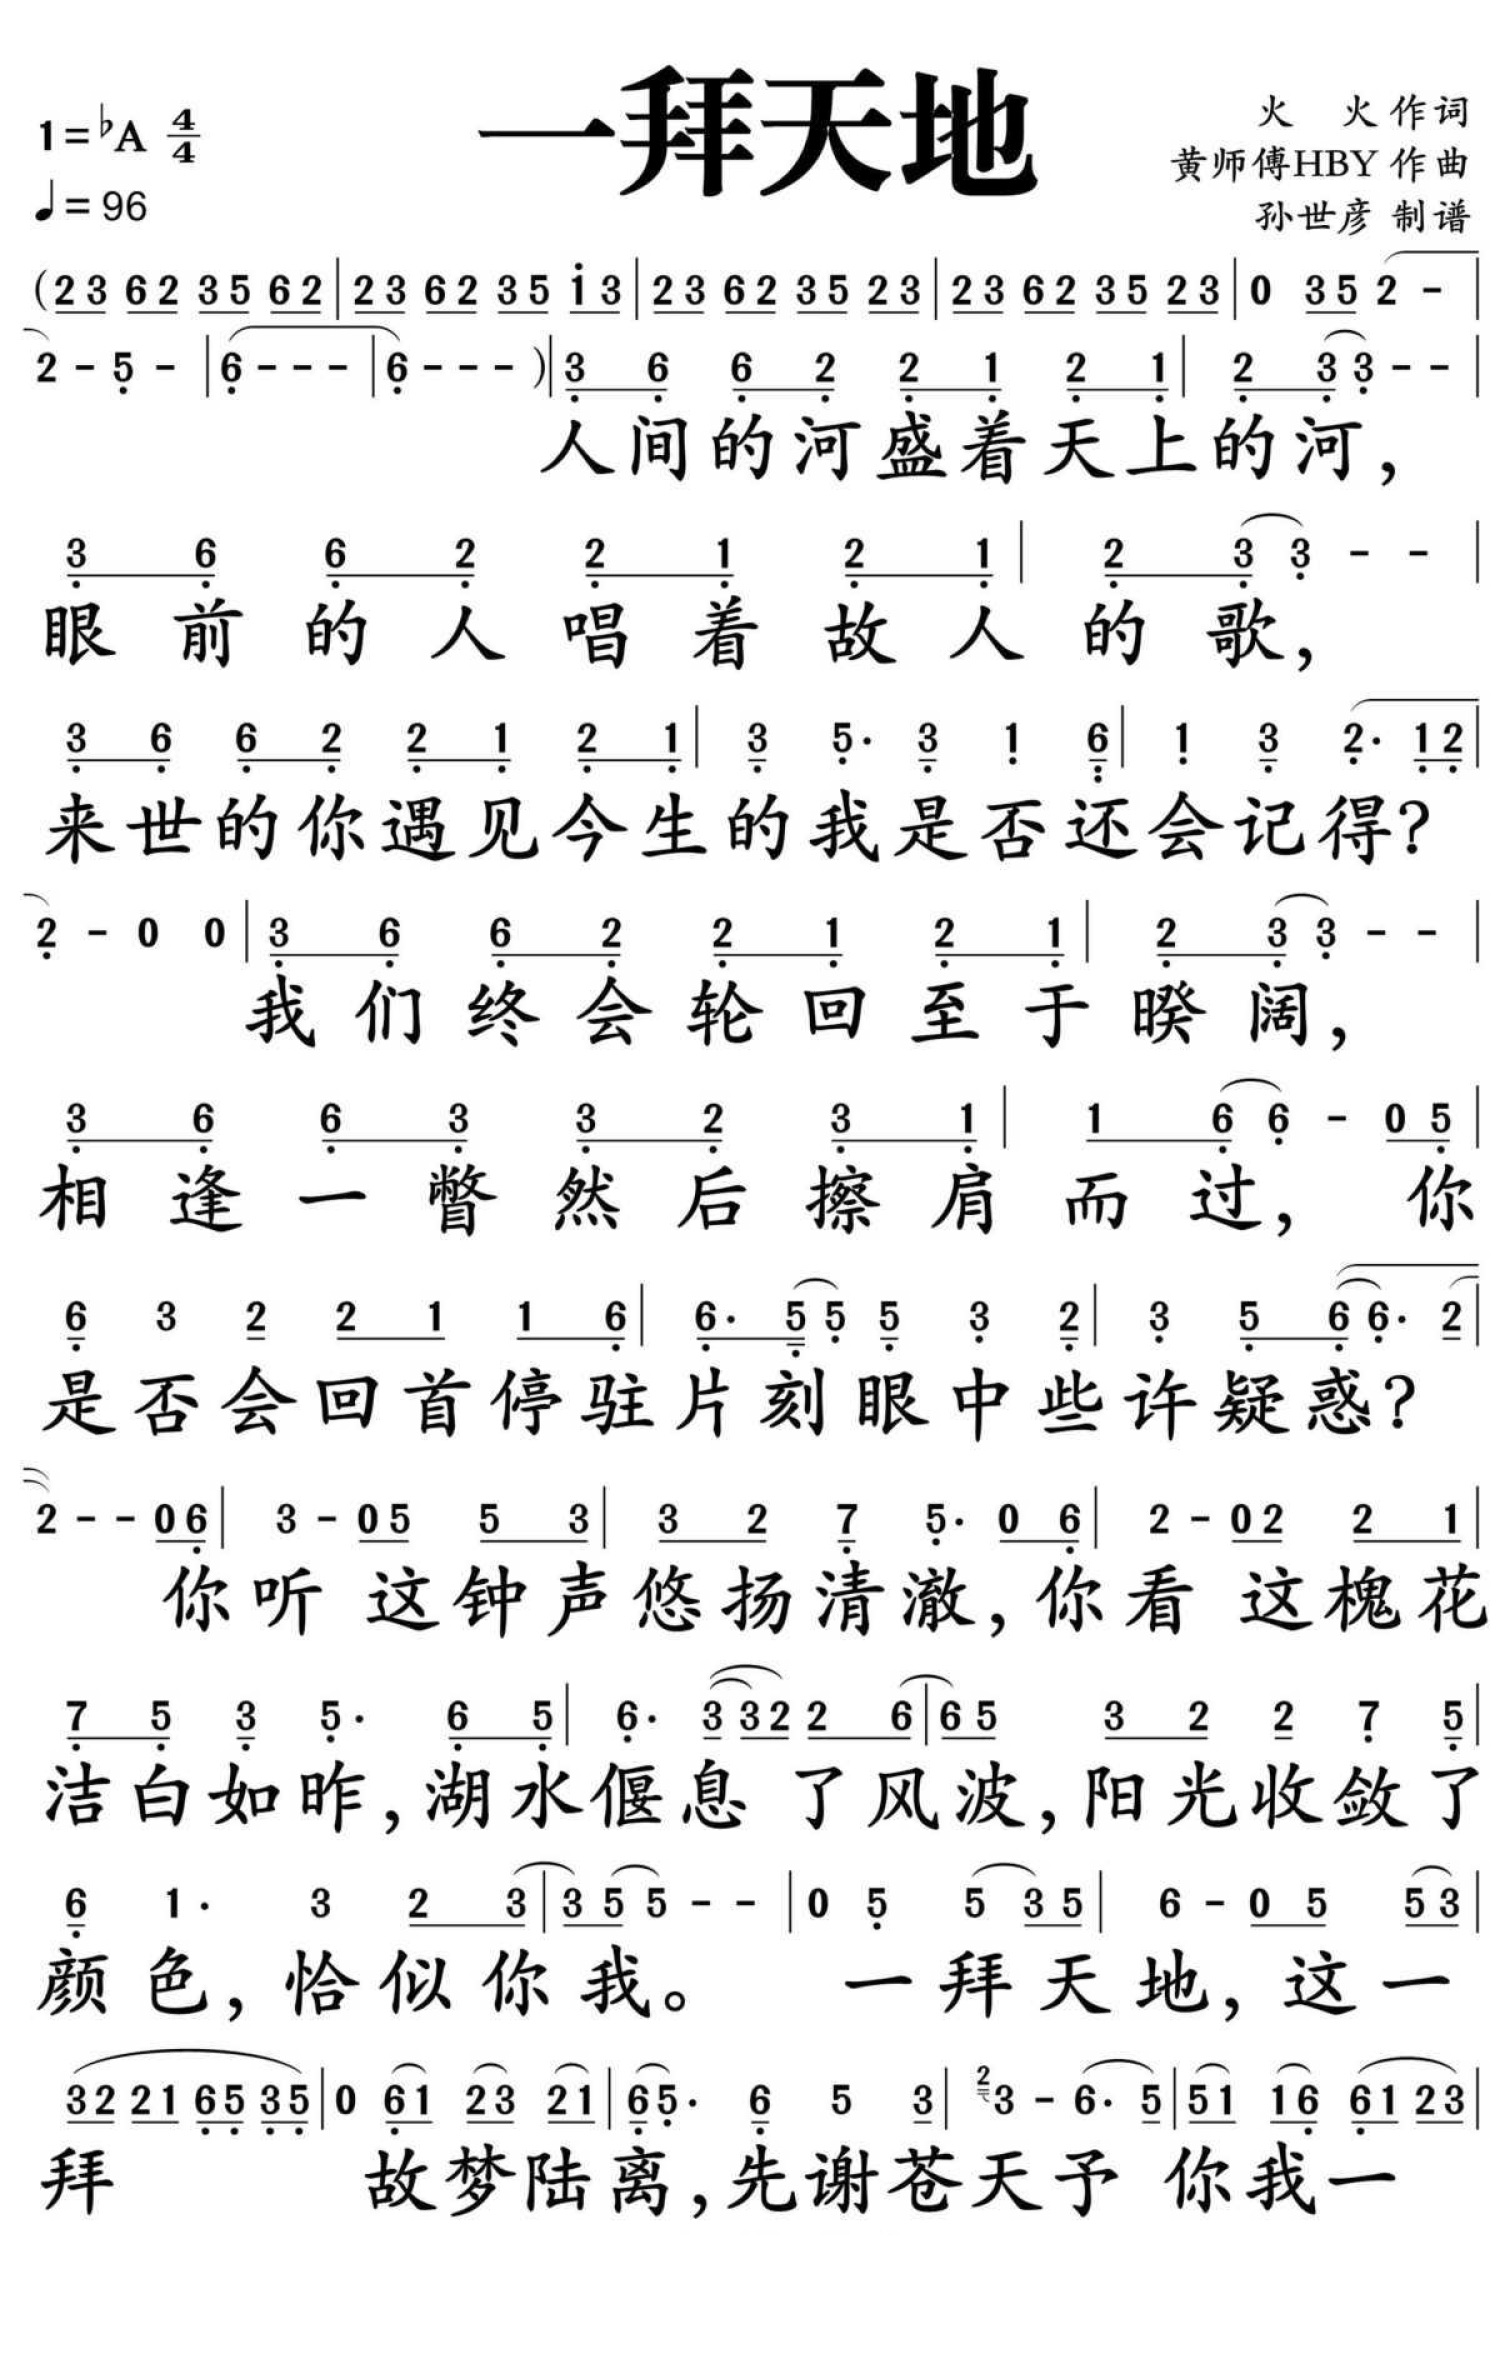 一拜天地
1=♭A 4/4
♩=96
火 火 作词
黄师傅HBY 作曲
孙世彦 制谱
(23 62 35 62|23 62 35 i3|23 62 35 23|23 62 35 23|0 35 2 -|
2 - 5 -|6 - - -|6 - - -)|3 6 6 2 2 1 2 1|2 3 3 - -|
人间的河盛着天上的河，
3 6 6 2 2 1 2 1|2 3 3 - -|
眼前的人唱着故人的歌，
3 6 6 2 2 1 2 1|3 5· 3 1 6|1 3 2· 12|
来世的你遇见今生的我是否还会记得？
2 - 0 0|3 6 6 2 2 1 2 1|2 3 3 - -|
我们终会轮回至于暌阔，
3 6 6 3 3 2 3 1|1 6 6 - 0 5|
相逢一瞥然后擦肩而过，你
6 3 2 2 1 1 6|6· 5 5 5 3 2|3 5 6 6· 2|
是否会回首停驻片刻眼中些许疑惑？
2 - - 06|3 - 05 5 3|3 2 7 5· 0 6|2 - 02 2 1|
你听 这钟声悠扬清澈，你看 这槐花
7 5 3 5· 6 5|6· 3 32 2 6|65 3 2 2 7 5|
洁白如昨，湖水偃息 了风波，阳光收敛了
6 1· 3 2 3|3 5 5 - -|0 5 5 35|6 - 0 5 53|
颜色，恰似你我。 一拜天地，这一
32 21 65 35|0 61 23 21|65· 6 5 3|2 3 - 6· 5|51 16 61 23|
拜 故梦陆离，先谢苍天予 你我一